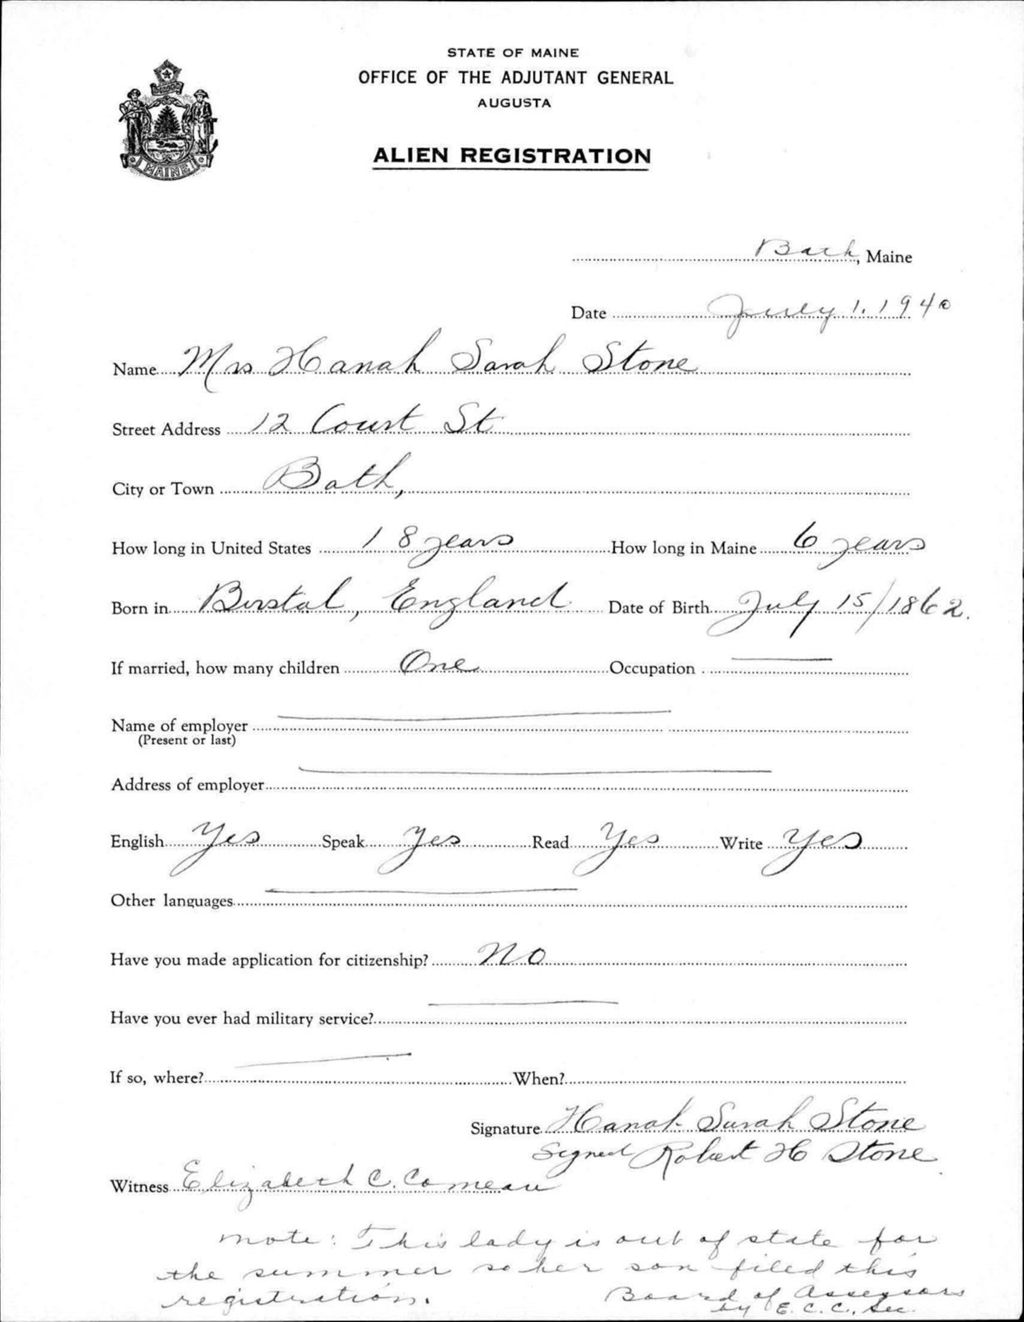 STATE OF MAINE
OFFICE OF THE ADJUTANT GENERAL
AUGUSTA
ALIEN REGISTRATION
MAINE
Bath, Maine
Date July 1, 1940
Name Mrs Hanah Sarah Stone
Street Address 12 Court St
City or Town Bath,
How long in United States 18 years How long in Maine 6 years
Born in Birstal, England Date of Birth July 15/1862.
If married, how many children One Occupation
Name of employer
(Present or last)
Address of employer
English Yes Speak Yes Read Yes Write Yes
Other languages
Have you made application for citizenship? No
Have you ever had military service?
If so, where? When?
Signature Hanah Sarah Stone
Signed Robert H Stone
Witness Elizabeth C. Comeau
note: This lady is out of state for
the summer so her son filed this
registration. Board of Assessors
by E. C. C., Sec.